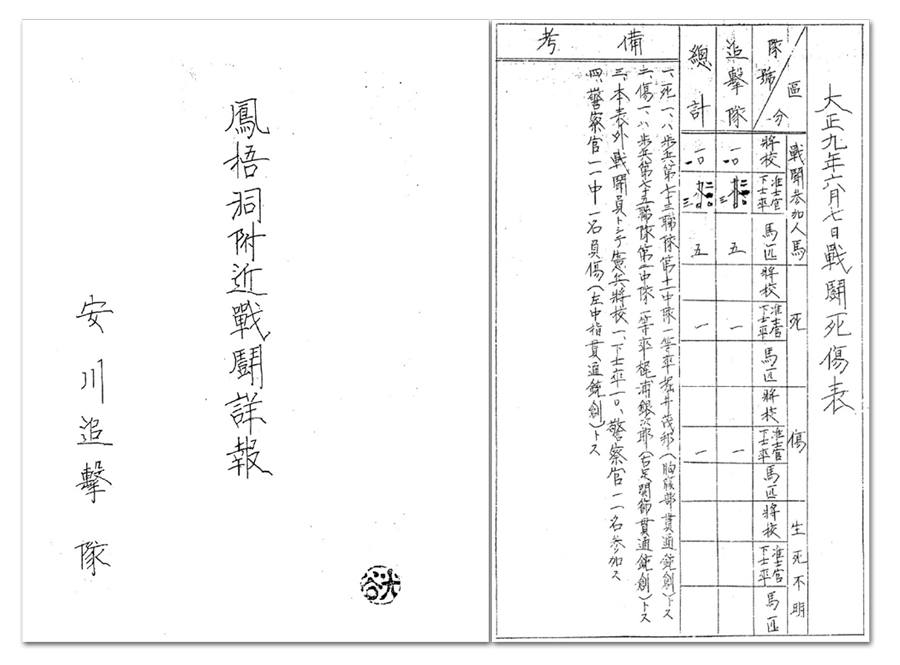 鳳梧洞附近戰鬪詳報
安川追擊隊
大正九年六月七日戰鬪死傷表
區分
隊號
戰鬪參加人馬
死
傷
生死不明
將校
准士官下士卒
馬匹
將校
准士官下士卒
馬匹
將校
准士官下士卒
馬匹
將校
准士官下士卒
馬匹
追擊隊
五
一
一
總計
五
一
一
備考
一、死一、ハ歩兵第七十三聯隊第十一中隊一等卒堀井茂郎(胸腹部貫通銃創)トス
二、傷一、ハ歩兵第七十五聯隊第二中隊二等卒梶浦銀次郎(右足関節貫通銃創)トス
三、本表外戰鬪員トシテ憲兵將校一、下士卒一〇、警察官一一名参加ス
四、警察官一一中一名負傷(左中指貫通銃創)トス